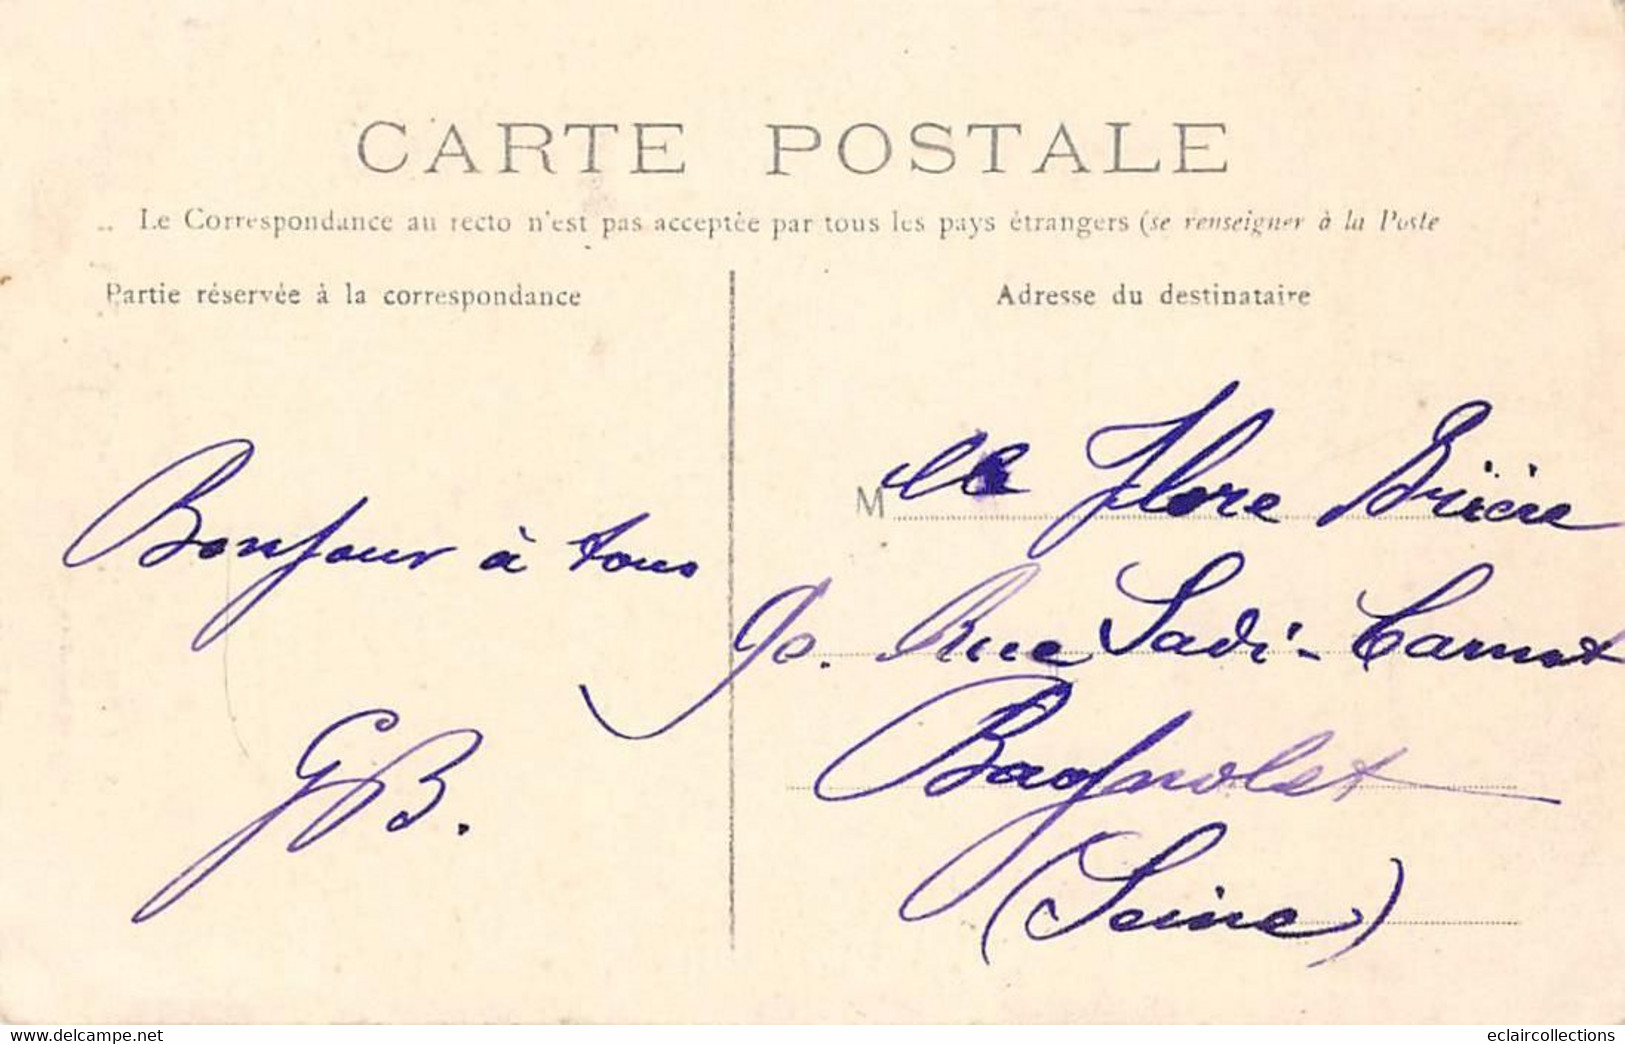 CARTE POSTALE
.. Le Correspondance au recto n'est pas acceptée par tous les pays étrangers (se renseigner à la Poste
Partie réservée à la correspondance
Adresse du destinataire
Bonjour à tous
GB.
Mlle Flore Brière
90. Rue Sadi-Carnot
Bagnolet
(Seine)
www.delcampe.net
eclaircollections